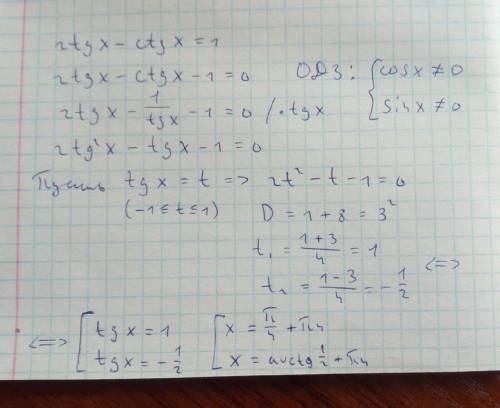 2tgx - ctgx = 1
2tgx - ctgx - 1 = 0
ОДЗ: { cosx ≠ 0
sinx ≠ 0
2tgx - 1/tgx - 1 = 0 / · tgx
2tg²x - tgx - 1 = 0
Пусть tgx = t => 2t² - t - 1 = 0
(-1 ≤ t ≤ 1) D = 1 + 8 = 3²
t₁ = (1+3)/4 = 1
t₂ = (1-3)/4 = -1/2 <=>
<=> [ tgx = 1 [ x = π/4 + πn
tgx = -1/2 x = arctg 1/2 + πn